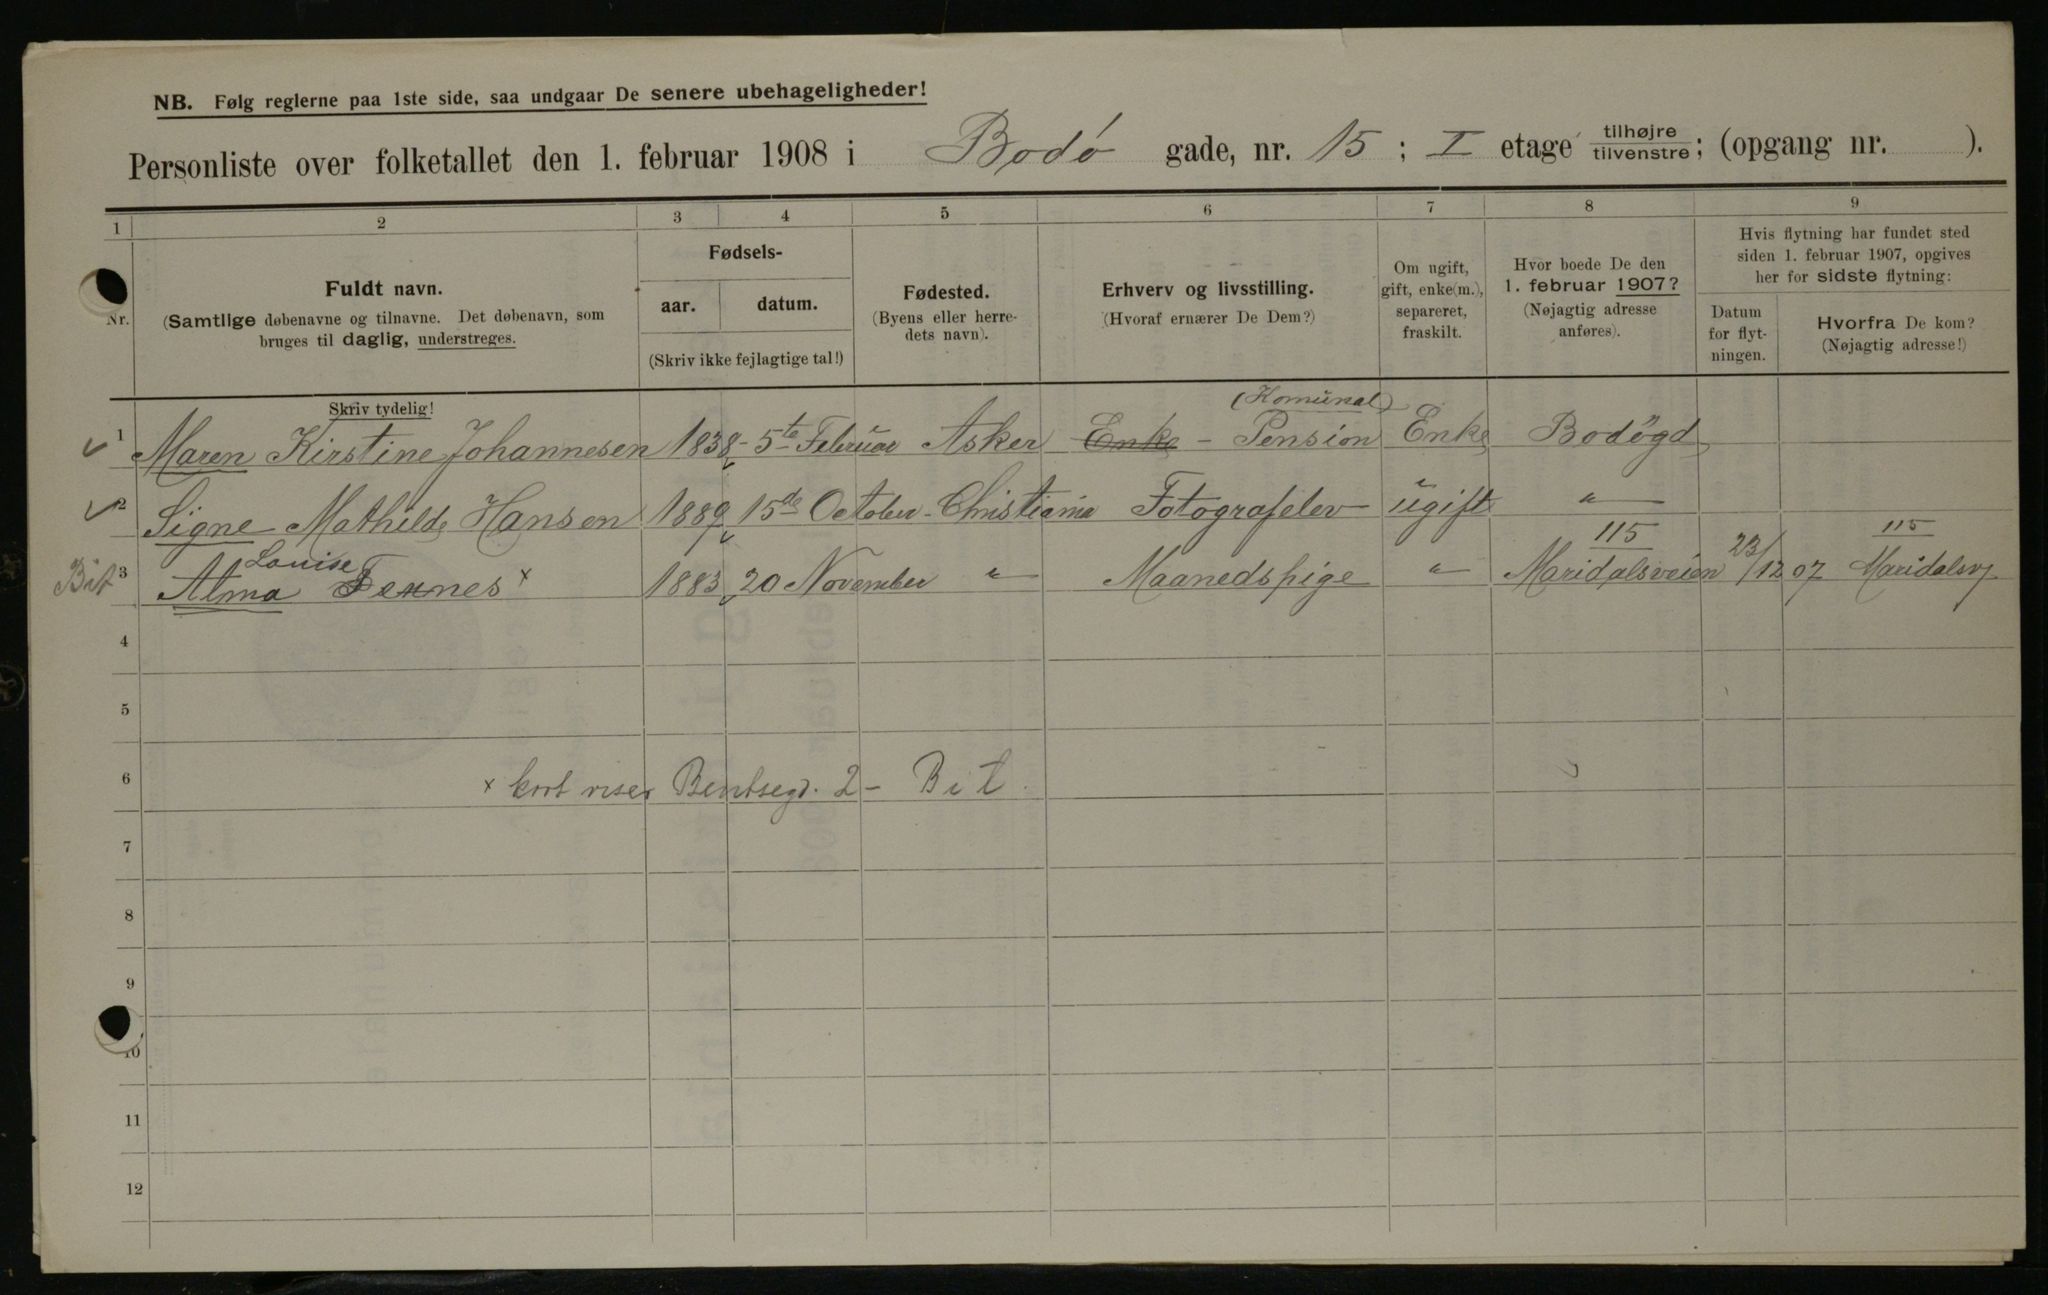 NB. Følg reglerne paa 1ste side, saa undgaar De senere ubehageligheder!
Personliste over folketallet den 1. februar 1908 i Bodø gade, nr. 15 ; I etage tilhøjre tilvenstre; (opgang nr. ).
1 2 3 4 5 6 7 8 9
Nr.
Fuldt navn.
(Samtlige døbenavne og tilnavne. Det døbenavn, som
bruges til daglig, understreges.
Skriv tydelig!
Fødsels-
aar. datum.
(Skriv ikke fejlagtige tal!)
Fødested.
(Byens eller herre-
dets navn).
Erhverv og livsstilling.
(Hvoraf ernærer De Dem?)
Om ugift,
gift, enke(m.),
separeret,
fraskilt.
Hvor boede De den
1. februar 1907?
(Nøjagtig adresse
anføres).
Hvis flytning har fundet sted
siden 1. februar 1907, opgives
her for sidste flytning:
Datum
for flyt-
ningen.
Hvorfra De kom?
(Nøjagtig adresse!)
(Komunal)
1 Maren Kirstine Johannesen 1838 - 5te Februar Asker Enke - Pension Enke Bodøgd
2 Signe Mathilde Hansen 1889 15de October - Christiania Fotografelev ugift "
Louise 115 115
Bit 3 Alma Fennes x 1883 20 November " Maanedspige " Maridalsveien 23/12 07 Maridalsv
4
5
6 x kort viser Bentsegd. 2 - Bit
7
8
9
10
11
12